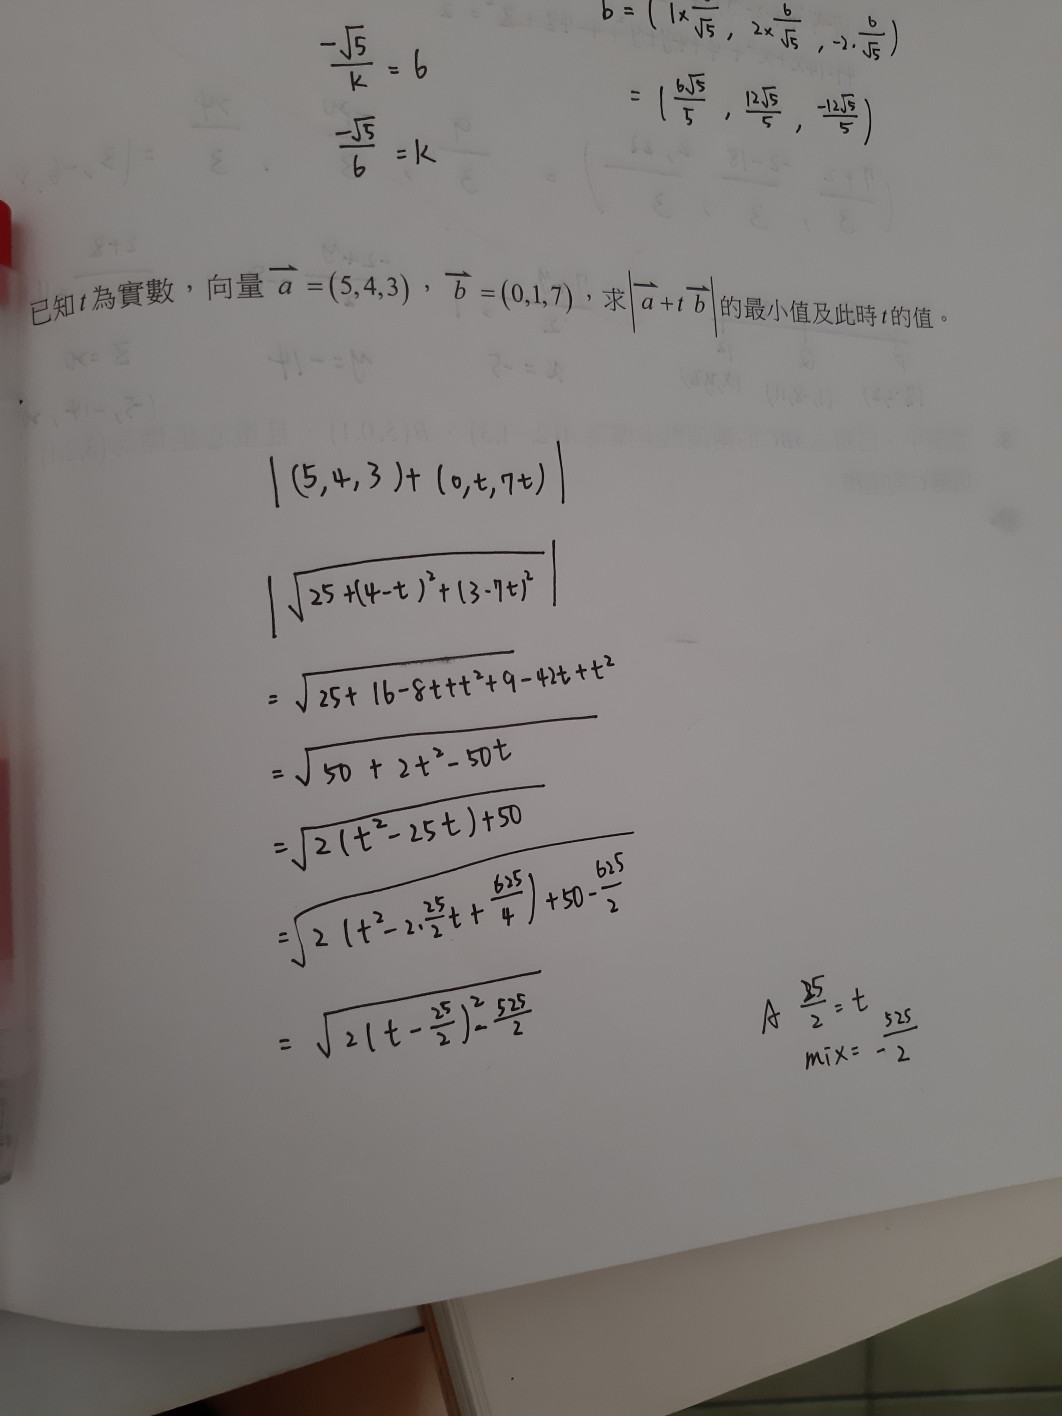 -√5/k = 6
-√5/6 = k
b = (1×6/√5, 2×6/√5, -2·6/√5)
= (6√5/5, 12√5/5, -12√5/5)
已知t為實數，向量a⃗=(5,4,3)，b⃗=(0,1,7)，求|a⃗+t b⃗|的最小值及此時t的值。
|(5,4,3)+(0,t,7t)|
|√(25+(4-t)²+(3-7t)²)|
= √(25+16-8t+t²+9-42t+t²)
= √(50+2t²-50t)
= √(2(t²-25t)+50)
= √(2(t²-2·25/2t+625/4)+50-625/2)
= √(2(t-25/2)²-525/2)
A 25/2=t
mix= -525/2